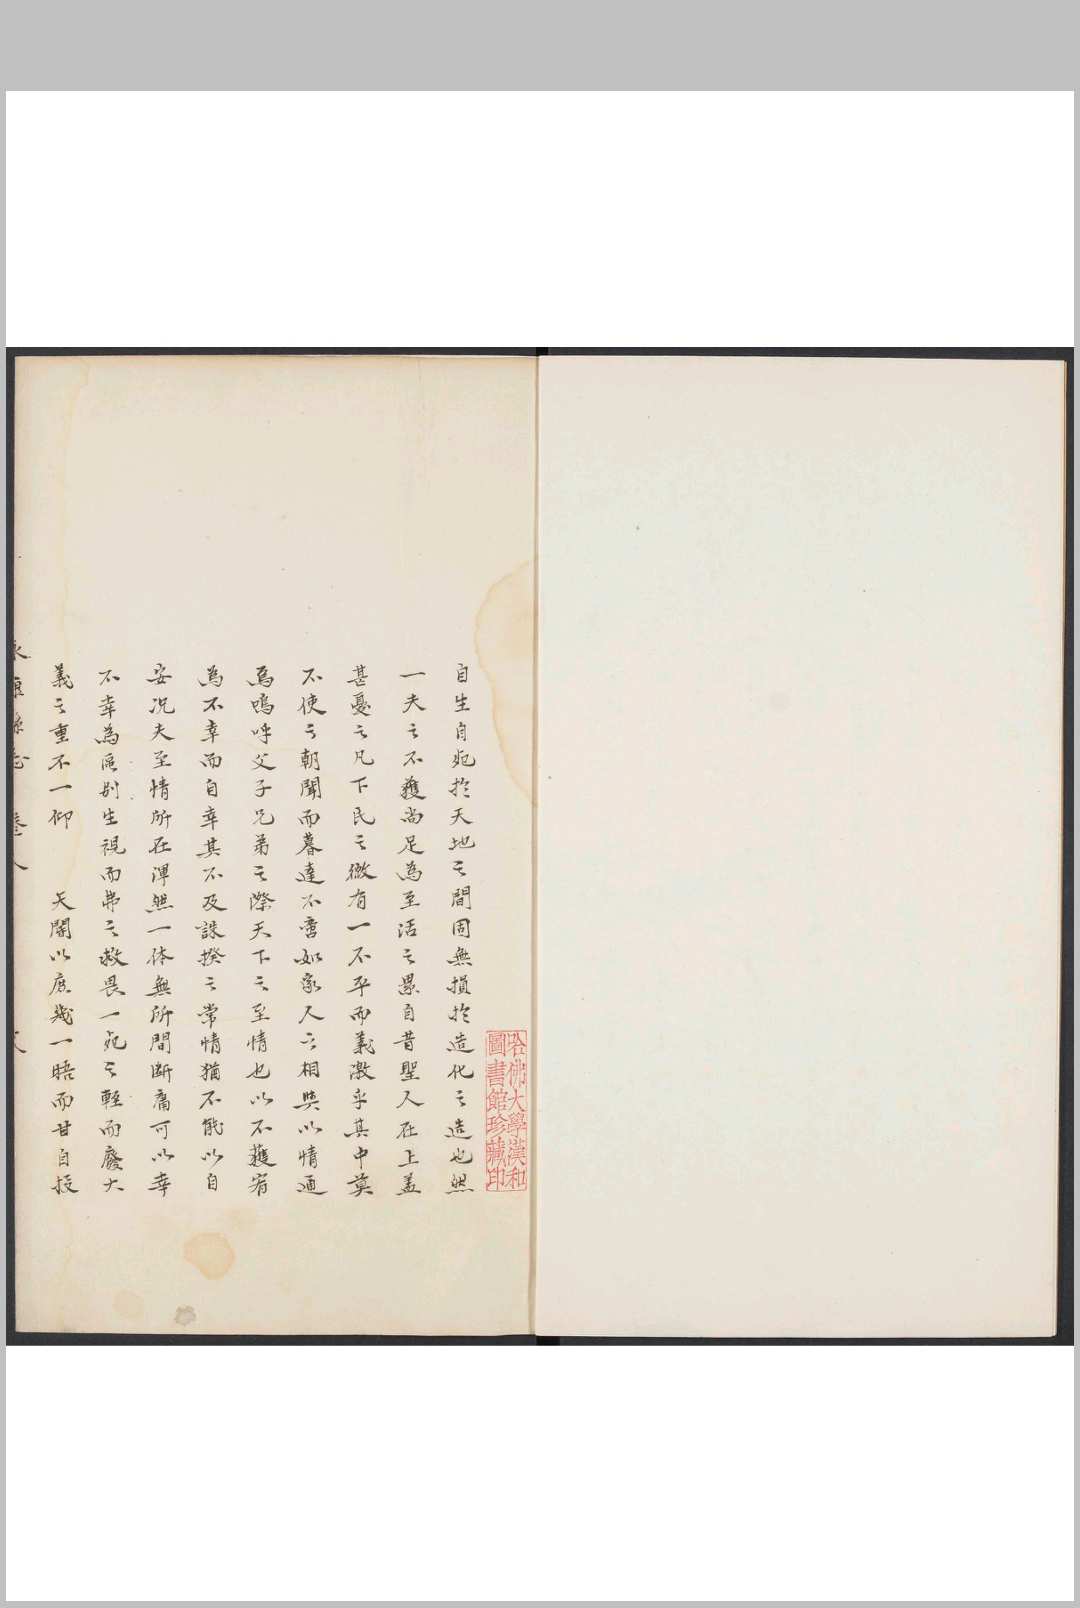 自生自死於天地之間固無損於造化之造也然
一夫之不獲尚足為至活之累自昔聖人在上盖
甚憂之凡下民之微有一不平而義激乎其中莫
不使之朝聞而暮達不啻如家人之相與以情通
焉嗚呼父子兄弟之際天下之至情也以不獲宥
為不幸而自幸其不及誅揆之常情猶不能以自
安况夫至情所在渾然一体無所間斷庸可以幸
不幸為區别生視而弗之救畏一死之輕而廢大
義之重不一仰　天閽以庶幾一晤而甘自投
永康縣志　卷八
文
哈佛大學漢和
圖書館珍藏印